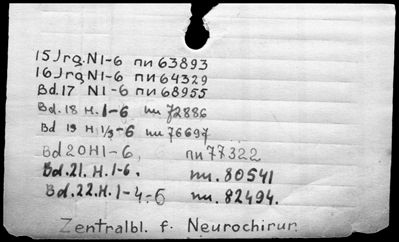 15 Jrg. N1-6 пи 63893
16 Jrg. N1-6 пи 64329
Bd. 17 N1-6 пи 68955
Bd. 18 H. 1-6 пи 72886
Bd 19 H 1/3-6 пи 76697
Bd 20 H1-6, пи 77322
Bd. 21. H. 1-6. пи. 80541
Bd. 22. H. 1-4-6 пи. 82494.
Zentralbl. f. Neurochirur.